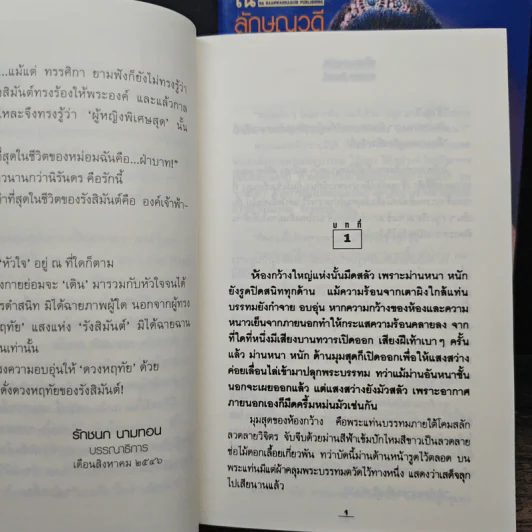 ใน
ลักษณวดี
...แม้แต่ ทรรศิกา ยามฟังก็ยังไม่ทรงรู้ว่า
งสิมันต์ทรงร้องให้พระองค์ และแล้วกาล
ไหละจึงทรงรู้ว่า ‘ผู้หญิงพิเศษสุด’ นั้น
ที่สุดในชีวิตของหม่อมฉันคือ...ฝ่าบาท!”
วนานกว่านิรันดร คือรักนี้
าที่สุดในชีวิตของรังสิมันต์คือ องค์เจ้าฟ้า-
‘หัวใจ’ อยู่ ณ ที่ใดก็ตาม
งกายย่อมจะ ‘เดิน’ มารวมกับหัวใจจนได้
รดำสนิท มิได้ฉายภาพผู้ใด นอกจากผู้ทรง
ฤทัย’ แสงแห่ง ‘รังสิมันต์’ มิได้ฉายฉาน
นเท่านั้น
รงความอบอุ่นให้ ‘ดวงหฤทัย’ ด้วย
ดั่งดวงหฤทัยของรังสิมันต์!
รักชนก นามทอน
บรรณาธิการ
เดือนสิงหาคม ๒๕๔๖
บทที่
1
ห้องกว้างใหญ่แห่งนั้นมืดสลัว เพราะม่านหนา หนัก
ยังรูดปิดสนิททุกด้าน แม้ความร้อนจากเตาผิงใกล้แท่น
บรรทมยังกำจาย อบอุ่น หากความกว้างของห้องและความ
หนาวเย็นจากภายนอกทำให้กระแสความร้อนคลายลง จาก
ที่ใดที่หนึ่งมีเสียงบานทวารเปิดออก เสียงฝีเท้าเบาๆ ครั้น
แล้ว ม่านหนา หนัก ด้านมุมสุดก็เปิดออกเพื่อให้แสงสว่าง
ค่อยเลื่อนไล่เข้ามาปลุกพระบรรทม ทว่าแม้ม่านอันหนาชั้น
นอกจะเผยออกแล้ว แต่แสงสว่างยังมัวสลัว เพราะอากาศ
ภายนอกเองก็มืดครึ้มหม่นมัวเช่นกัน
มุมสุดของห้องกว้าง คือพระแท่นบรรทมภายใต้โคมสลัก
ลวดลายวิจิตร จับจีบด้วยม่านสีฟ้าเข้มปักไหมสีขาวเป็นลวดลาย
ช่อไม้ดอกเลื้อยเกี่ยวพัน ทว่าบัดนี้ม่านด้านหน้ารูดไว้ตลอด บน
พระแท่นมีแต่ผ้าคลุมพระบรรทมตวัดไว้ทางหนึ่ง แสดงว่าเสด็จลุก
ไปเสียนานแล้ว
1